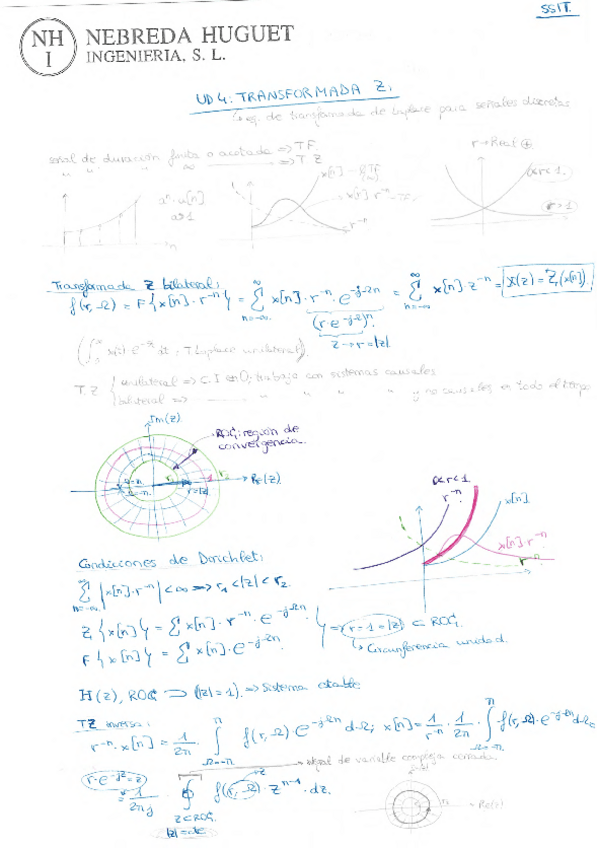 SSIT.
NH
I
NEBREDA HUGUET
INGENIERIA, S. L.
UD4: TRANSFORMADA Z.
↳ eq. de transformada de Laplace para señales discretas
señal de duración finita o acotada ⇒ TF.
" " " ∞ ⇒ T Z
aⁿ·u[n]
a>1
n
x[n]
x[n]·r⁻ⁿ
r⁻ⁿ
r→Real ⊕
0<r<1.
r>1
Transformada Z bilateral:
f(r,Ω) = F{x[n]·r⁻ⁿ} = Σ x[n]·r⁻ⁿ·e^(-jΩn) = Σ x[n]·z⁻ⁿ = X(z) = Z{x[n]}
n=-∞ ∞ (r·e^(-jΩ))ⁿ n=-∞ ∞
z→r=|z|
T. Laplace unilateral
T.Z { unilateral ⇒ C.I en 0; trabajo con sistemas causales
bilateral ⇒ " " " y no causales en todo el tiempo
Im(z)
ROC: región de
convergencia.
r₂
Re(z)
r=|z|
0<r<1
r⁻ⁿ
x[n]
x[n]·r⁻ⁿ
r⁻ⁿ
Condiciones de Dirichlet:
Σ |x[n]·r⁻ⁿ| < ∞ ⇒ r₁<|z|<r₂.
n=-∞ ∞
Z{x[n]} = Σ x[n]·r⁻ⁿ·e^(-jΩn)
F{x[n]} = Σ x[n]·e^(-jΩn)
⇒ r=1=|z| ⊂ ROC.
↳ Circunferencia unidad.
H(z), ROC ⊃ (|z|=1) ⇒ Sistema estable
TZ inversa:
r⁻ⁿ·x[n] = 1/2π · ∫ f(r,Ω)·e^(-jΩn) dΩ; x[n] = 1/r⁻ⁿ · 1/2π · ∫ f(r,Ω)·e^(-jΩn) dΩ
Ω=-π π
de variable compleja cerrada
= 1/2πj ∮ f(r,Ω)·zⁿ⁻¹·dz.
z⊂ROC.
Re(z)